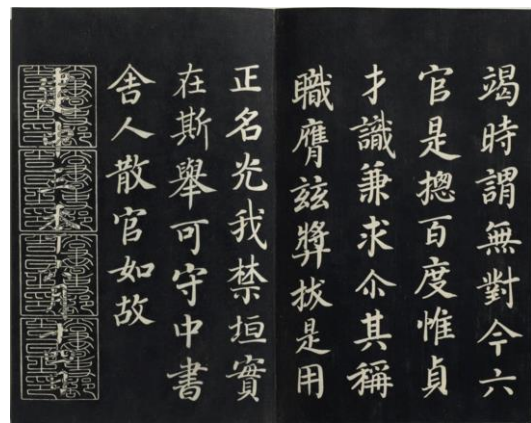 竭時謂無對今六
官是揔百度惟貞
才識兼求尒其稱
職膺茲奬拔是用
正名光我禁垣實
在斯舉可守中書
舍人散官如故
建中三年六月十四日